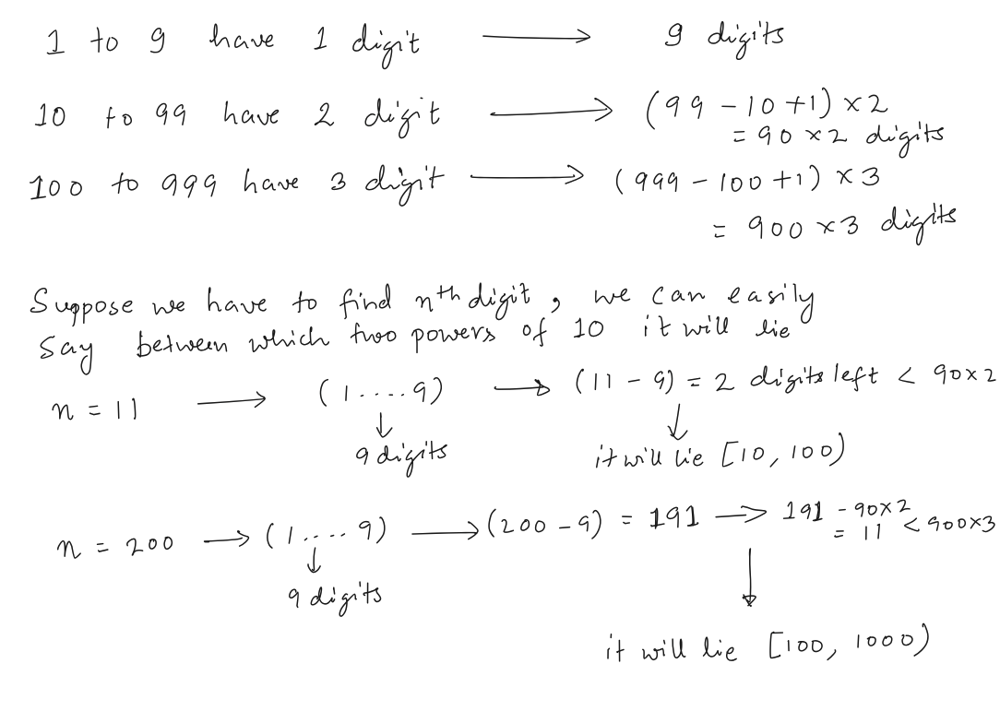 1 to 9 have 1 digit → 9 digits
10 to 99 have 2 digit → (99 - 10 + 1) × 2
= 90 × 2 digits
100 to 999 have 3 digit → (999 - 100 + 1) × 3
= 900 × 3 digits
Suppose we have to find nth digit, we can easily
say between which two powers of 10 it will lie
n = 11 → (1....9) → (11 - 9) = 2 digits left < 90×2
↓ ↓
9 digits it will lie [10, 100)
n = 200 → (1....9) → (200 - 9) = 191 → 191 - 90×2
= 11 < 900×3
↓ ↓
9 digits
it will lie [100, 1000)